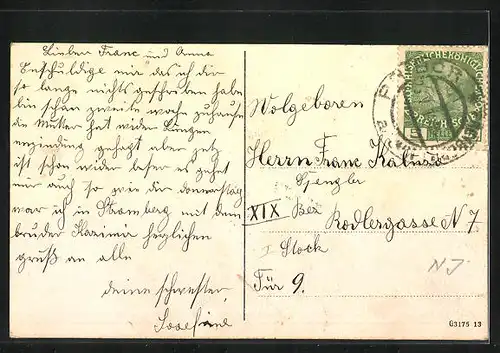 Lieber Franc und Anna
Enschuldige mir das ich dir
so lange nichts geschriben habe
bin schon zweite woche zuhause
die Mutter hat wider Lungen
enzindung gehabt aber jetz
ist schon wider beser es gehet
mir auch so wie dir donnerstag
war ich in Stramberg mit dem
bruder Kazimir herzlichen
gruß an alle
deine schwester
Josefine
Wolgeboren
Herrn Franc Kaluza
Spengler
XIX Bez
Rodlergasse N 7
I Stock
Tür 9.
NJ
G3175 13